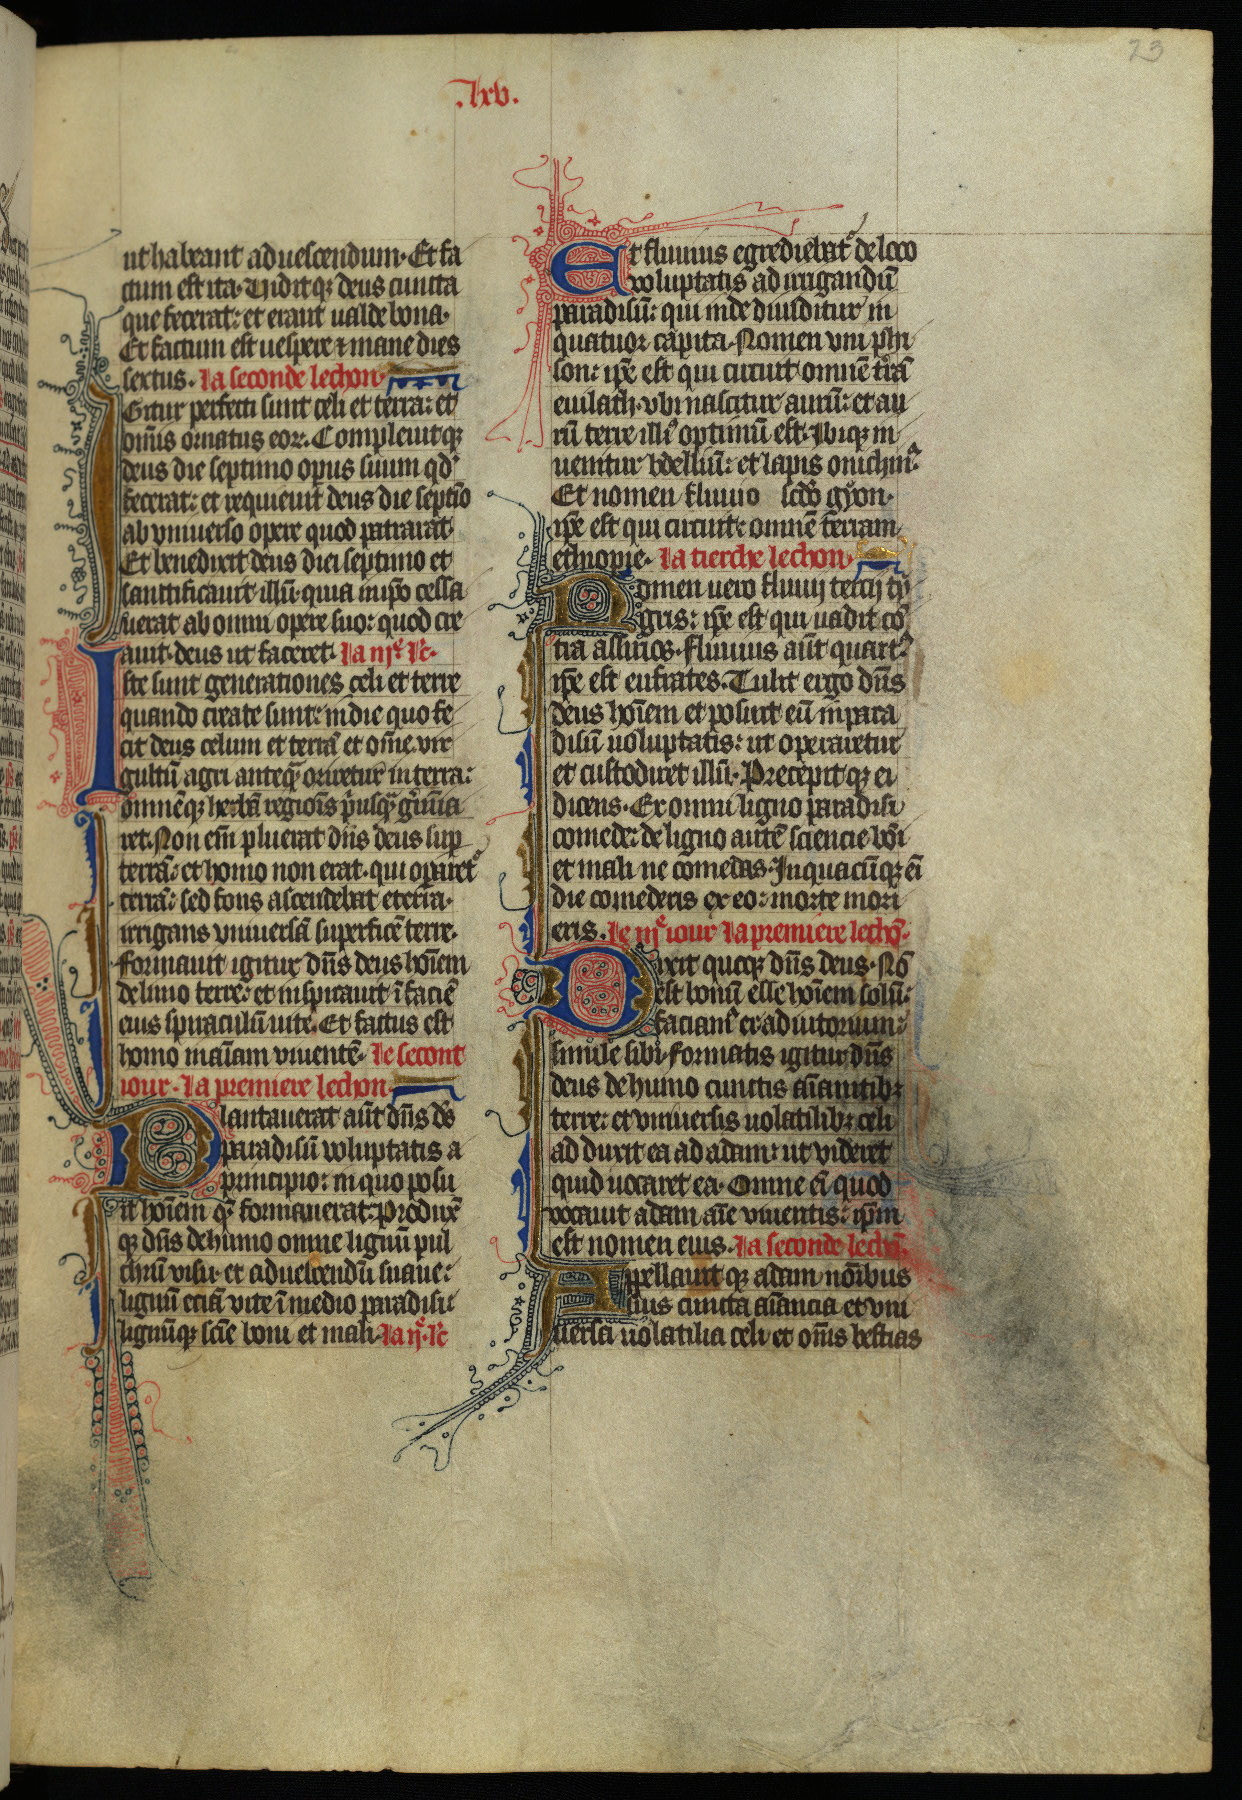 23
.xv.
ut habeant ad uescendum. Et fa
ctum est ita. Uidit qꝫ deus cuncta
que fecerat: et erant ualde bona.
Et factum est uespere ⁊ mane dies
sextus. la seconde lechon.
Igitur perfecti sunt celi et terra: et
om̄is ornatus eoꝝ. Compleuit qꝫ
deus die septimo opus suum qd̓
fecerat: et requieuit deus die septīo
ab vniuerso opere quod patrarat.
Et benedixit deus diei septimo et
sanctificauit illū. quia in ip̄o cessa
uerat ab omni opere suo: quod cre
auit. deus ut faceret. la iij͛ lc̄.
Iste sunt generationes celi et terre
quando create sunt: in die quo fe
cit deus celum et terrā et om̄e vir
gultū agri anteqͣ oriretur in terra:
omnēqꝫ herbā regiōis p̓usqͣ g̓mīa
ret. Non em̄ pluerat dn̄s deus sup
terrā: et homo non erat. qui oparet᷑
terrā: sed fons ascendebat e terra.
irrigans vniuersā superficē terre.
formauit igitur dn̄s deus hoīem
de limo terre: et inspirauit ī faciē
eius spiraculū uite. Et factus est
homo in aīam viuentē. le second
iour. la premiere lechon.
Plantauerat aūt dn̄s ds̄
paradisū voluptatis a
principio: in quo posu
it hoīem qͣ formauerat: Produxͭ
qꝫ dn̄s de humo omne lignū pul
chrū visu. et ad uescendū suaue:
lignū eciā vite ī medio paradisi
lignūqꝫ scīe boni et mali. la ij͛. lc̄
Et fluuius egrediebat᷑ de loco
voluptatis ad irrigandū
paradisū: qui inde diuiditur in
quatuor capita. Nomen vni phi
son: ip̄e est qui circuit omnē t̓rā
euilath. vbi nascitur aurū: et au
rū terre illi᷒ optimū est. Ibiqꝫ in
uenitur bdelliū: et lapis onichin᷒.
Et nomen fluuio scd̓o gyon.
ip̄e est qui circuit: omnē terram
ethiopie. la tierche lechon.
Nomen uero fluuij tercij ty
gris: ip̄e est qui uadit cō
tra assirios. fluuius aūt quart᷒
ip̄e est eufrates. Tulit ergo dn̄s
deus hoīem et posuit eū in para
disū uoluptatis: ut operaretur
et custodiret illū. Precepit qꝫ ei
dicens. Ex omni ligno paradisi
comede: de ligno autē sciencie boī
et mali ne comedas. In quacūqꝫ eī
die comederis ex eo: morte mori
eris. le iij͛ iour la premiere lechō.
Dixit quoqꝫ dn̄s deus. Nō
est bonū esse hoīem solū:
faciam᷒ ei adiutorium:
simile sibi. formatis igitur dn̄s
deus de humo cunctis aīantibꝫ
terre: et vniuersis uolatilibꝫ celi
ad duxit ea ad adam: ut videret
quid uocaret ea. Omne eī quod
vocauit adam aīe viuentis: ip̄m
est nomen eius. la seconde lechō.
Appellauit qꝫ adam nōibus
suis cuncta aīancia et vni
uersa uolatilia celi et om̄is bestias